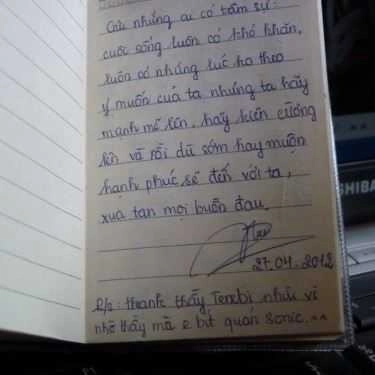 Gửi những ai có tâm sự:
cuộc sống luôn có khó khăn,
luôn có những lúc ko theo
ý muốn của ta nhưng ta hãy
mạnh mẽ lên, hãy kiên cường
lên và rồi dù sớm hay muộn
hạnh phúc sẽ đến với ta,
xua tan mọi buồn đau.
27.04.2012
P/s: thank thầy Tenebi nhìu vì
nhờ thầy mà e bít quan sonic. ^^
SHIBA